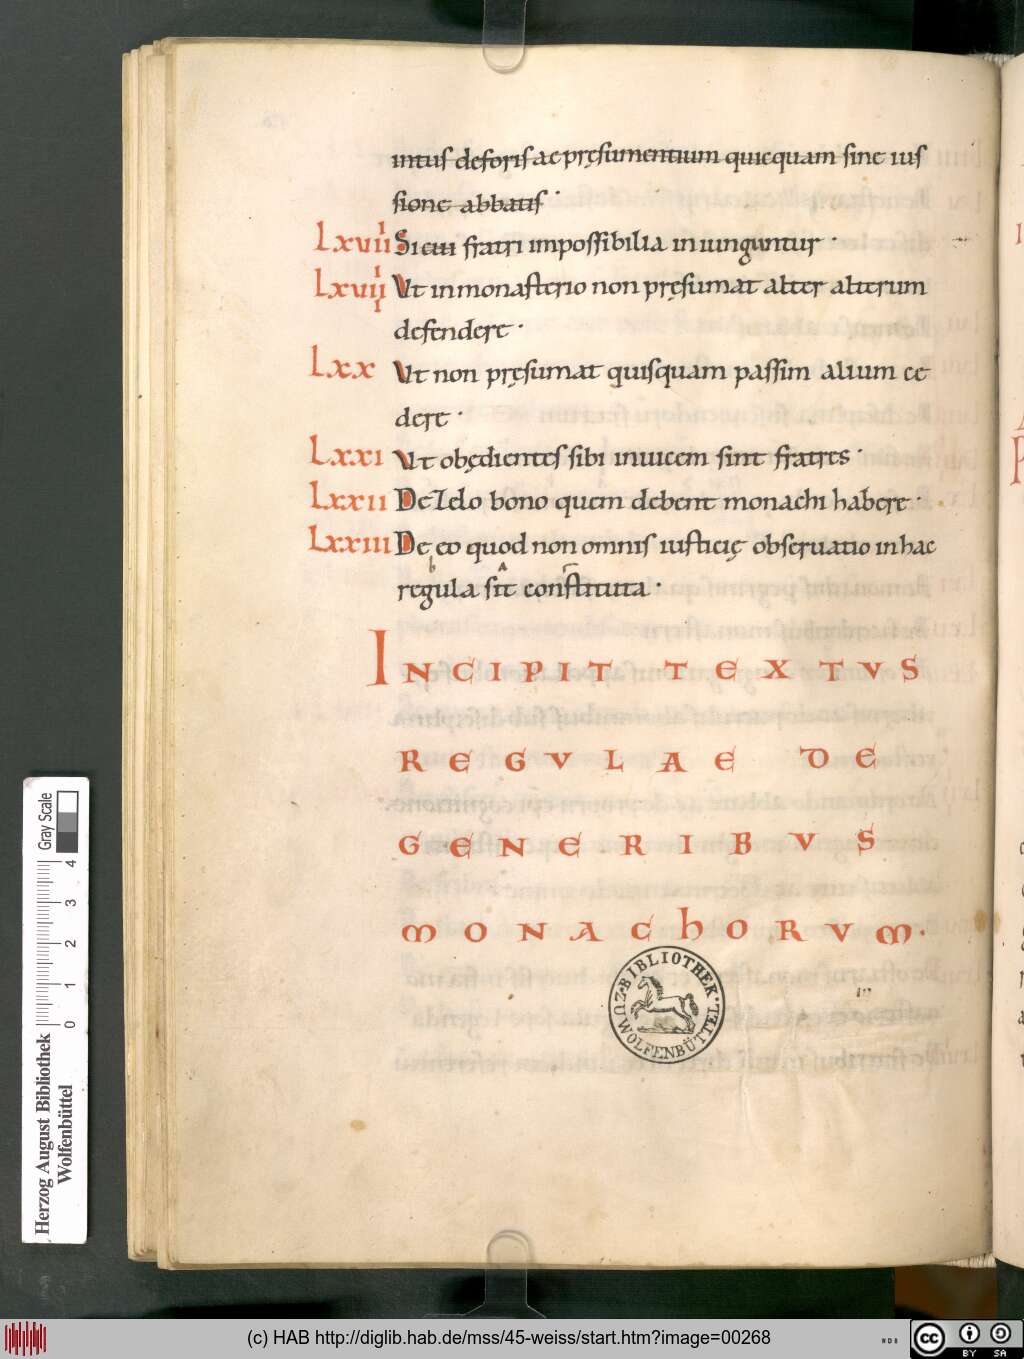 intus deforis ac pręsumentium quicquam sine ius
sione abbatis ·
Lxviii Sicui fratri impossibilia in iunguntur ·
Lxviiii Ut inmonasterio non pręsumat alter alterum
defendere ·
Lxx Ut non pręsumat quisquam passim alium ce
dere ·
Lxxi Ut obędientes sibi inuicem sint fratres ·
Lxxii De zelo bono quem debent monachi habere ·
Lxxiii De eo quod non omnis iusticię obseruatio in hac
regula sit constituta ·
INCIPIT TEXTVS
REGVLAE DE
GENERIBVS
MONACHORVM.
BIBLIOTHEK
ZU WOLFENBÜTTEL
Herzog August Bibliothek
Wolfenbüttel
0 1 2 3 4
Gray Scale
(c) HAB http://diglib.hab.de/mss/45-weiss/start.htm?image=00268
cc BY SA